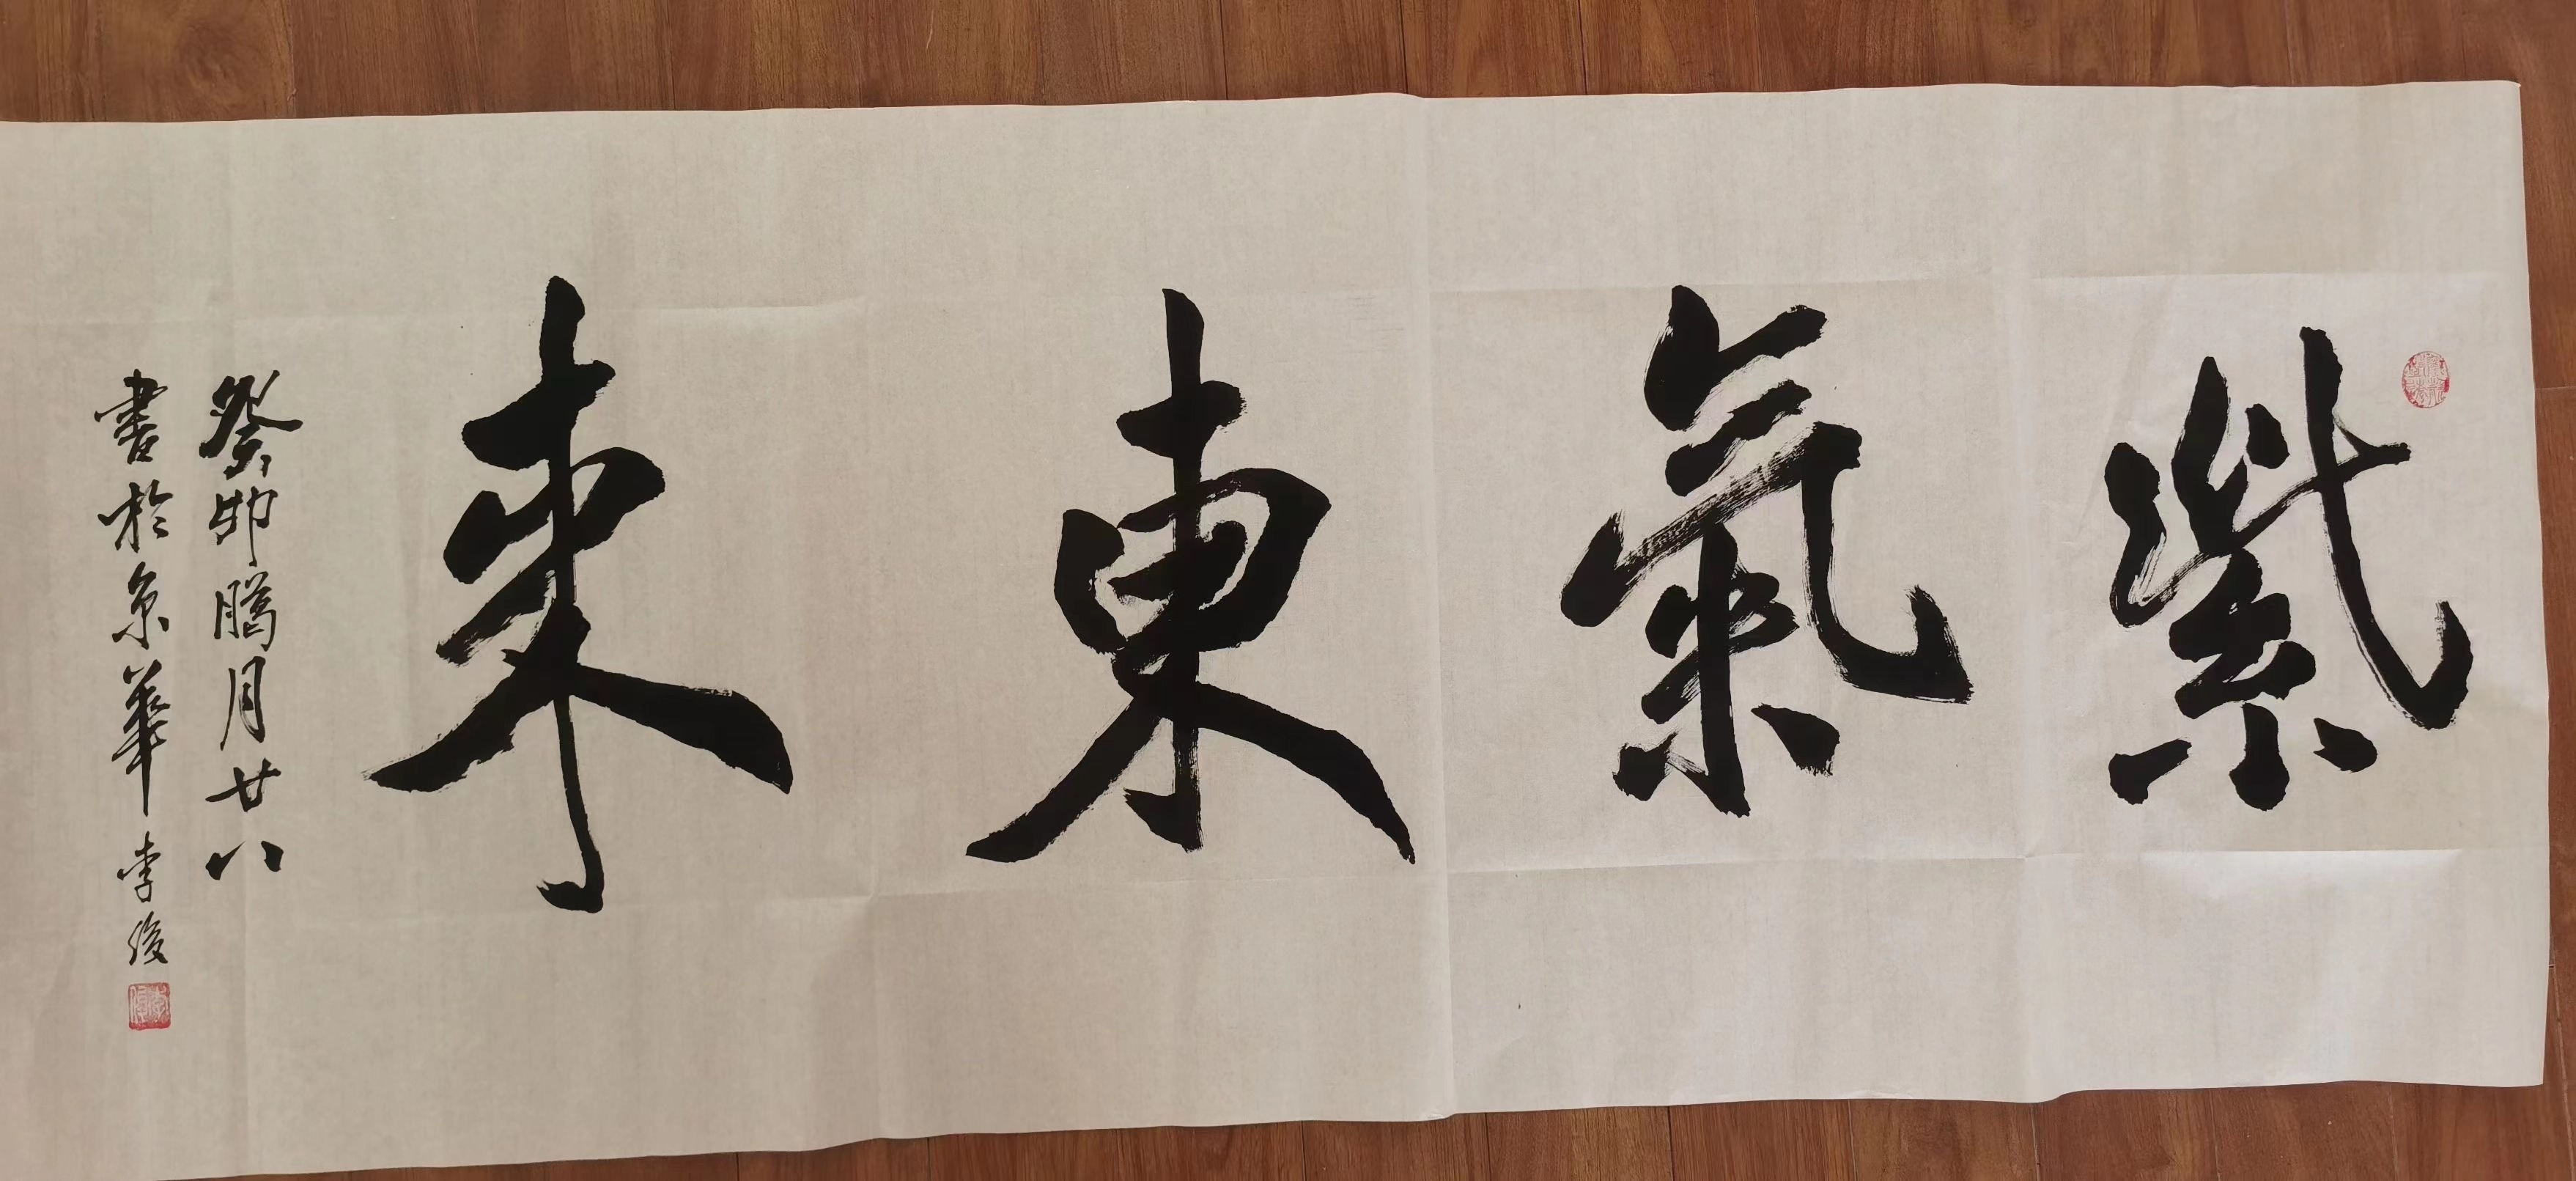 紫氣東來
癸卯臈月廿八
書於京華 李俊